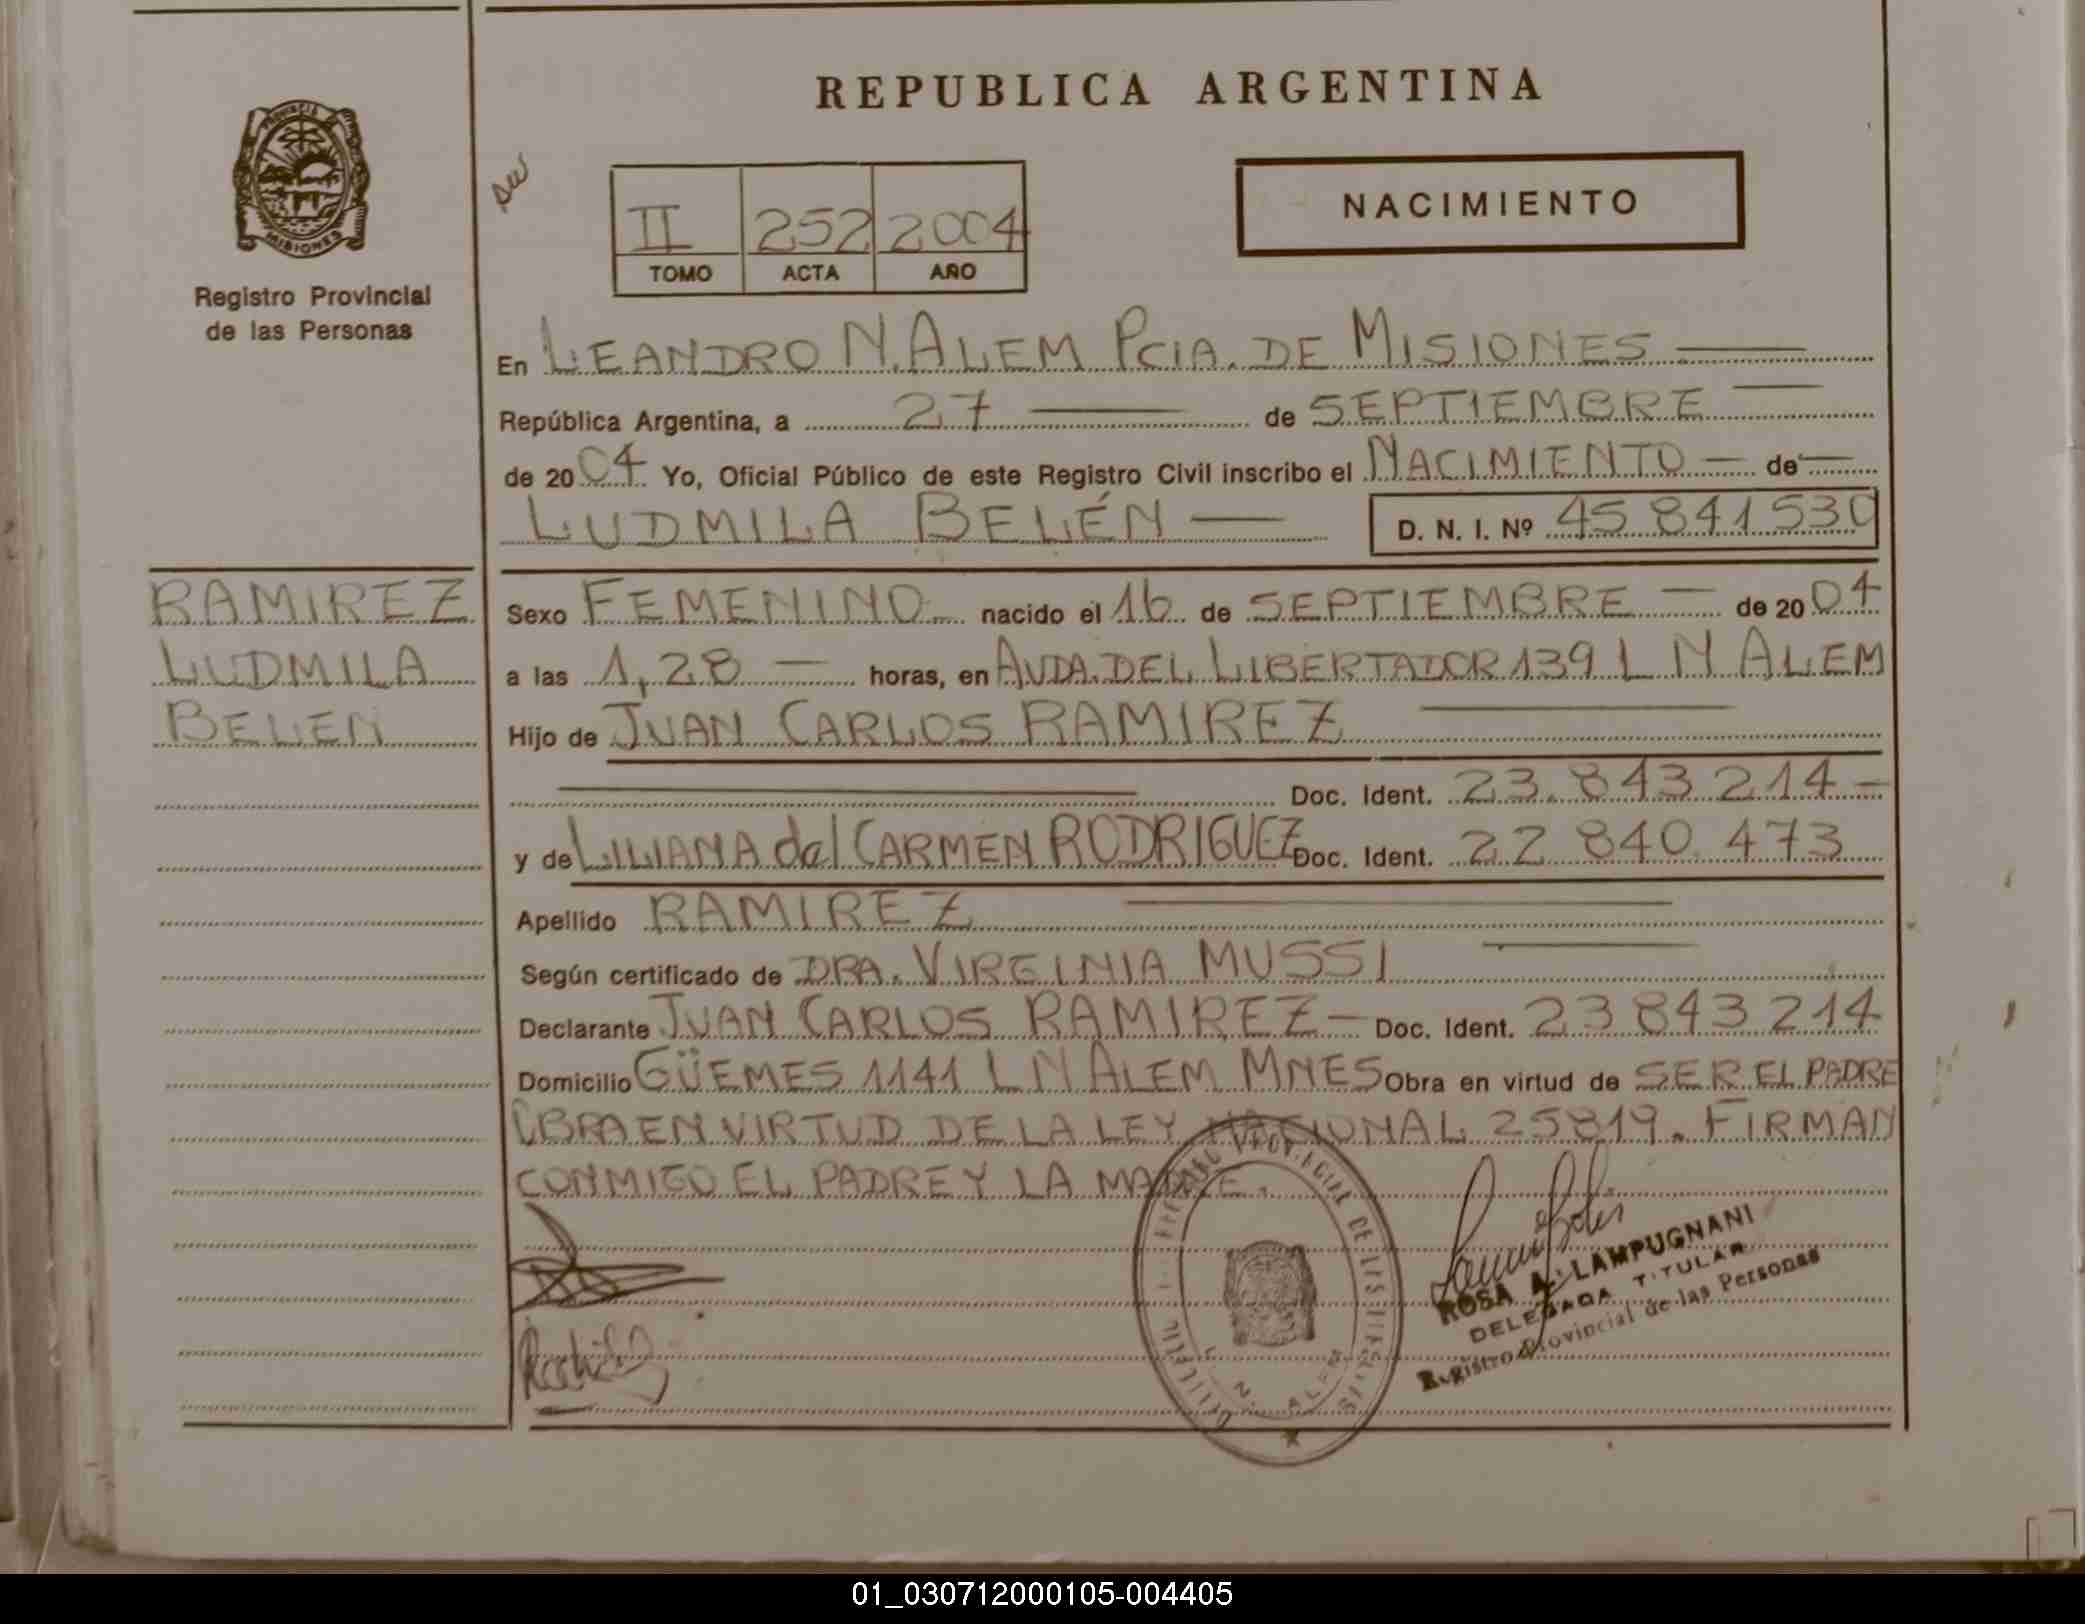 REPUBLICA ARGENTINA
PROVINCIA
MISIONES
Registro Provincial
de las Personas
II 252 2004
TOMO ACTA AÑO
NACIMIENTO
En LEANDRO N. ALEM PCIA. DE MISIONES
República Argentina, a 27 de SEPTIEMBRE
de 2004 Yo, Oficial Público de este Registro Civil inscribo el NACIMIENTO de
LUDMILA BELÉN D. N. I. Nº 45 841 530
RAMIREZ
LUDMILA
BELEN
Sexo FEMENINO nacido el 16 de SEPTIEMBRE de 2004
a las 1,28 horas, en AVDA. DEL LIBERTADOR 139 L N ALEM
Hijo de JUAN CARLOS RAMIREZ
Doc. Ident. 23.843 214
y de LILIANA del CARMEN RODRIGUEZ Doc. Ident. 22 840 473
Apellido RAMIREZ
Según certificado de DRA. VIRGINIA MUSSI
Declarante JUAN CARLOS RAMIREZ Doc. Ident. 23 843 214
Domicilio GÜEMES 1141 L N ALEM MNES Obra en virtud de SER EL PADRE
OBRA EN VIRTUD DE LA LEY NACIONAL 25819. FIRMAN
CONMIGO EL PADRE Y LA MADRE.
ROSA A. LAMPUGNANI
DELEGADA TITULAR
Registro Provincial de las Personas
L. N. ALEM
01_030712000105-004405